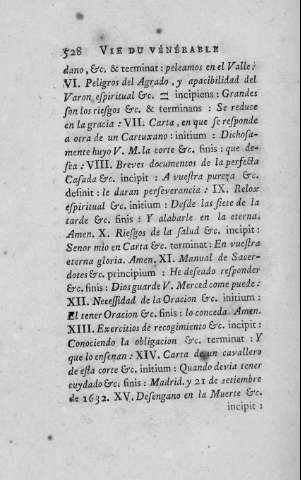 528 VIE DU VÉNÉRABLE
dano, &c. & terminat: peleamos en el Valle:
VI. Peligros del Agrado, y apacibilidad del
Varon espiritual &c. incipiens: Grandes
son los riesgos &c. & terminans: Se reduce
en la gracia: VII. Carta, en que se responde
a otra de un Cartuxano: initium: Dichosa-
mente huyo V. M. la corte &c. finis: que de-
sea: VIII. Breves documentos de la perfecta
Casada &c. incipit: A vuestra pureza &c.
definit: le daran perseverancia: IX. Relox
espiritual &c. initium: Desde las siete de la
tarde &c. finis: Y alabarle en la eterna.
Amen. X. Riesgos de la salud &c. incipit:
Senor mio en Carta &c. terminat: En vuestra
eterna gloria. Amen, XI. Manual de Sacer-
dotes &c. principium: He deseado responder
&c. finis: Dios guarde V. Merced come puede:
XII. Necessidad de la Oracion &c. initium:
El tener Oracion &c. finis: lo conceda. Amen.
XIII. Exercitios de recogimiento &c. incipit:
Conociendo la obligacion &c. terminat: Y
que lo ensenan: XIV. Carta de un cavallero
de esta corte &c. initium: Quando devia tener
cuydado &c. finis: Madrid. y 21 de setiembre
de 1632. XV. Desengano en la Muerte &c.
incipit: